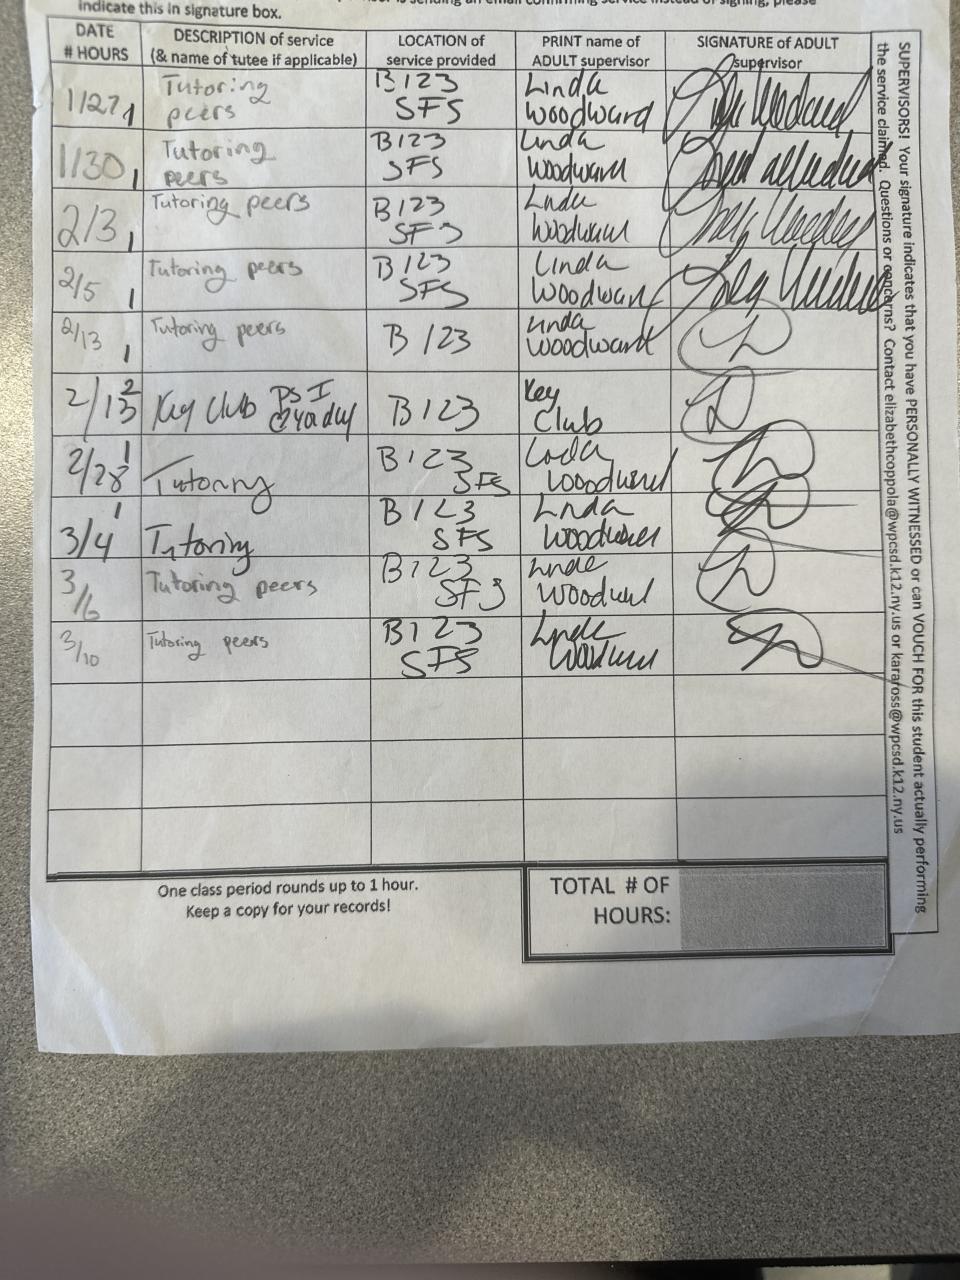 indicate this in signature box.
DATE
# HOURS
DESCRIPTION of service
(& name of tutee if applicable)
LOCATION of
service provided
PRINT name of
ADULT supervisor
SIGNATURE of ADULT
supervisor
1/27 1
Tutoring
peers
B123
SFS
Linda
Woodward
1/30 1
Tutoring
peers
B123
SFS
Linda
Woodward
2/3 1
Tutoring peers
B123
SFS
Linda
Woodward
2/5 1
Tutoring peers
B123
SFS
Linda
Woodward
2/13 1
Tutoring peers
B123
Linda
Woodward
2/13 2
Key Club
B123
Key
Club
2/28 1
Tutoring
B123
SFS
Linda
Woodward
3/4 1
Tutoring
B123
SFS
Linda
Woodward
3/6
Tutoring peers
B123
SFS
Linda
Woodward
3/10
Tutoring peers
B123
SFS
Linda
Woodward
One class period rounds up to 1 hour.
Keep a copy for your records!
TOTAL # OF
HOURS:
SUPERVISORS! Your signature indicates that you have PERSONALLY WITNESSED or can VOUCH FOR this student actually performing
the service claimed. Questions or concerns? Contact elizabethcoppola@wpcsd.k12.ny.us or karaross@wpcsd.k12.ny.us